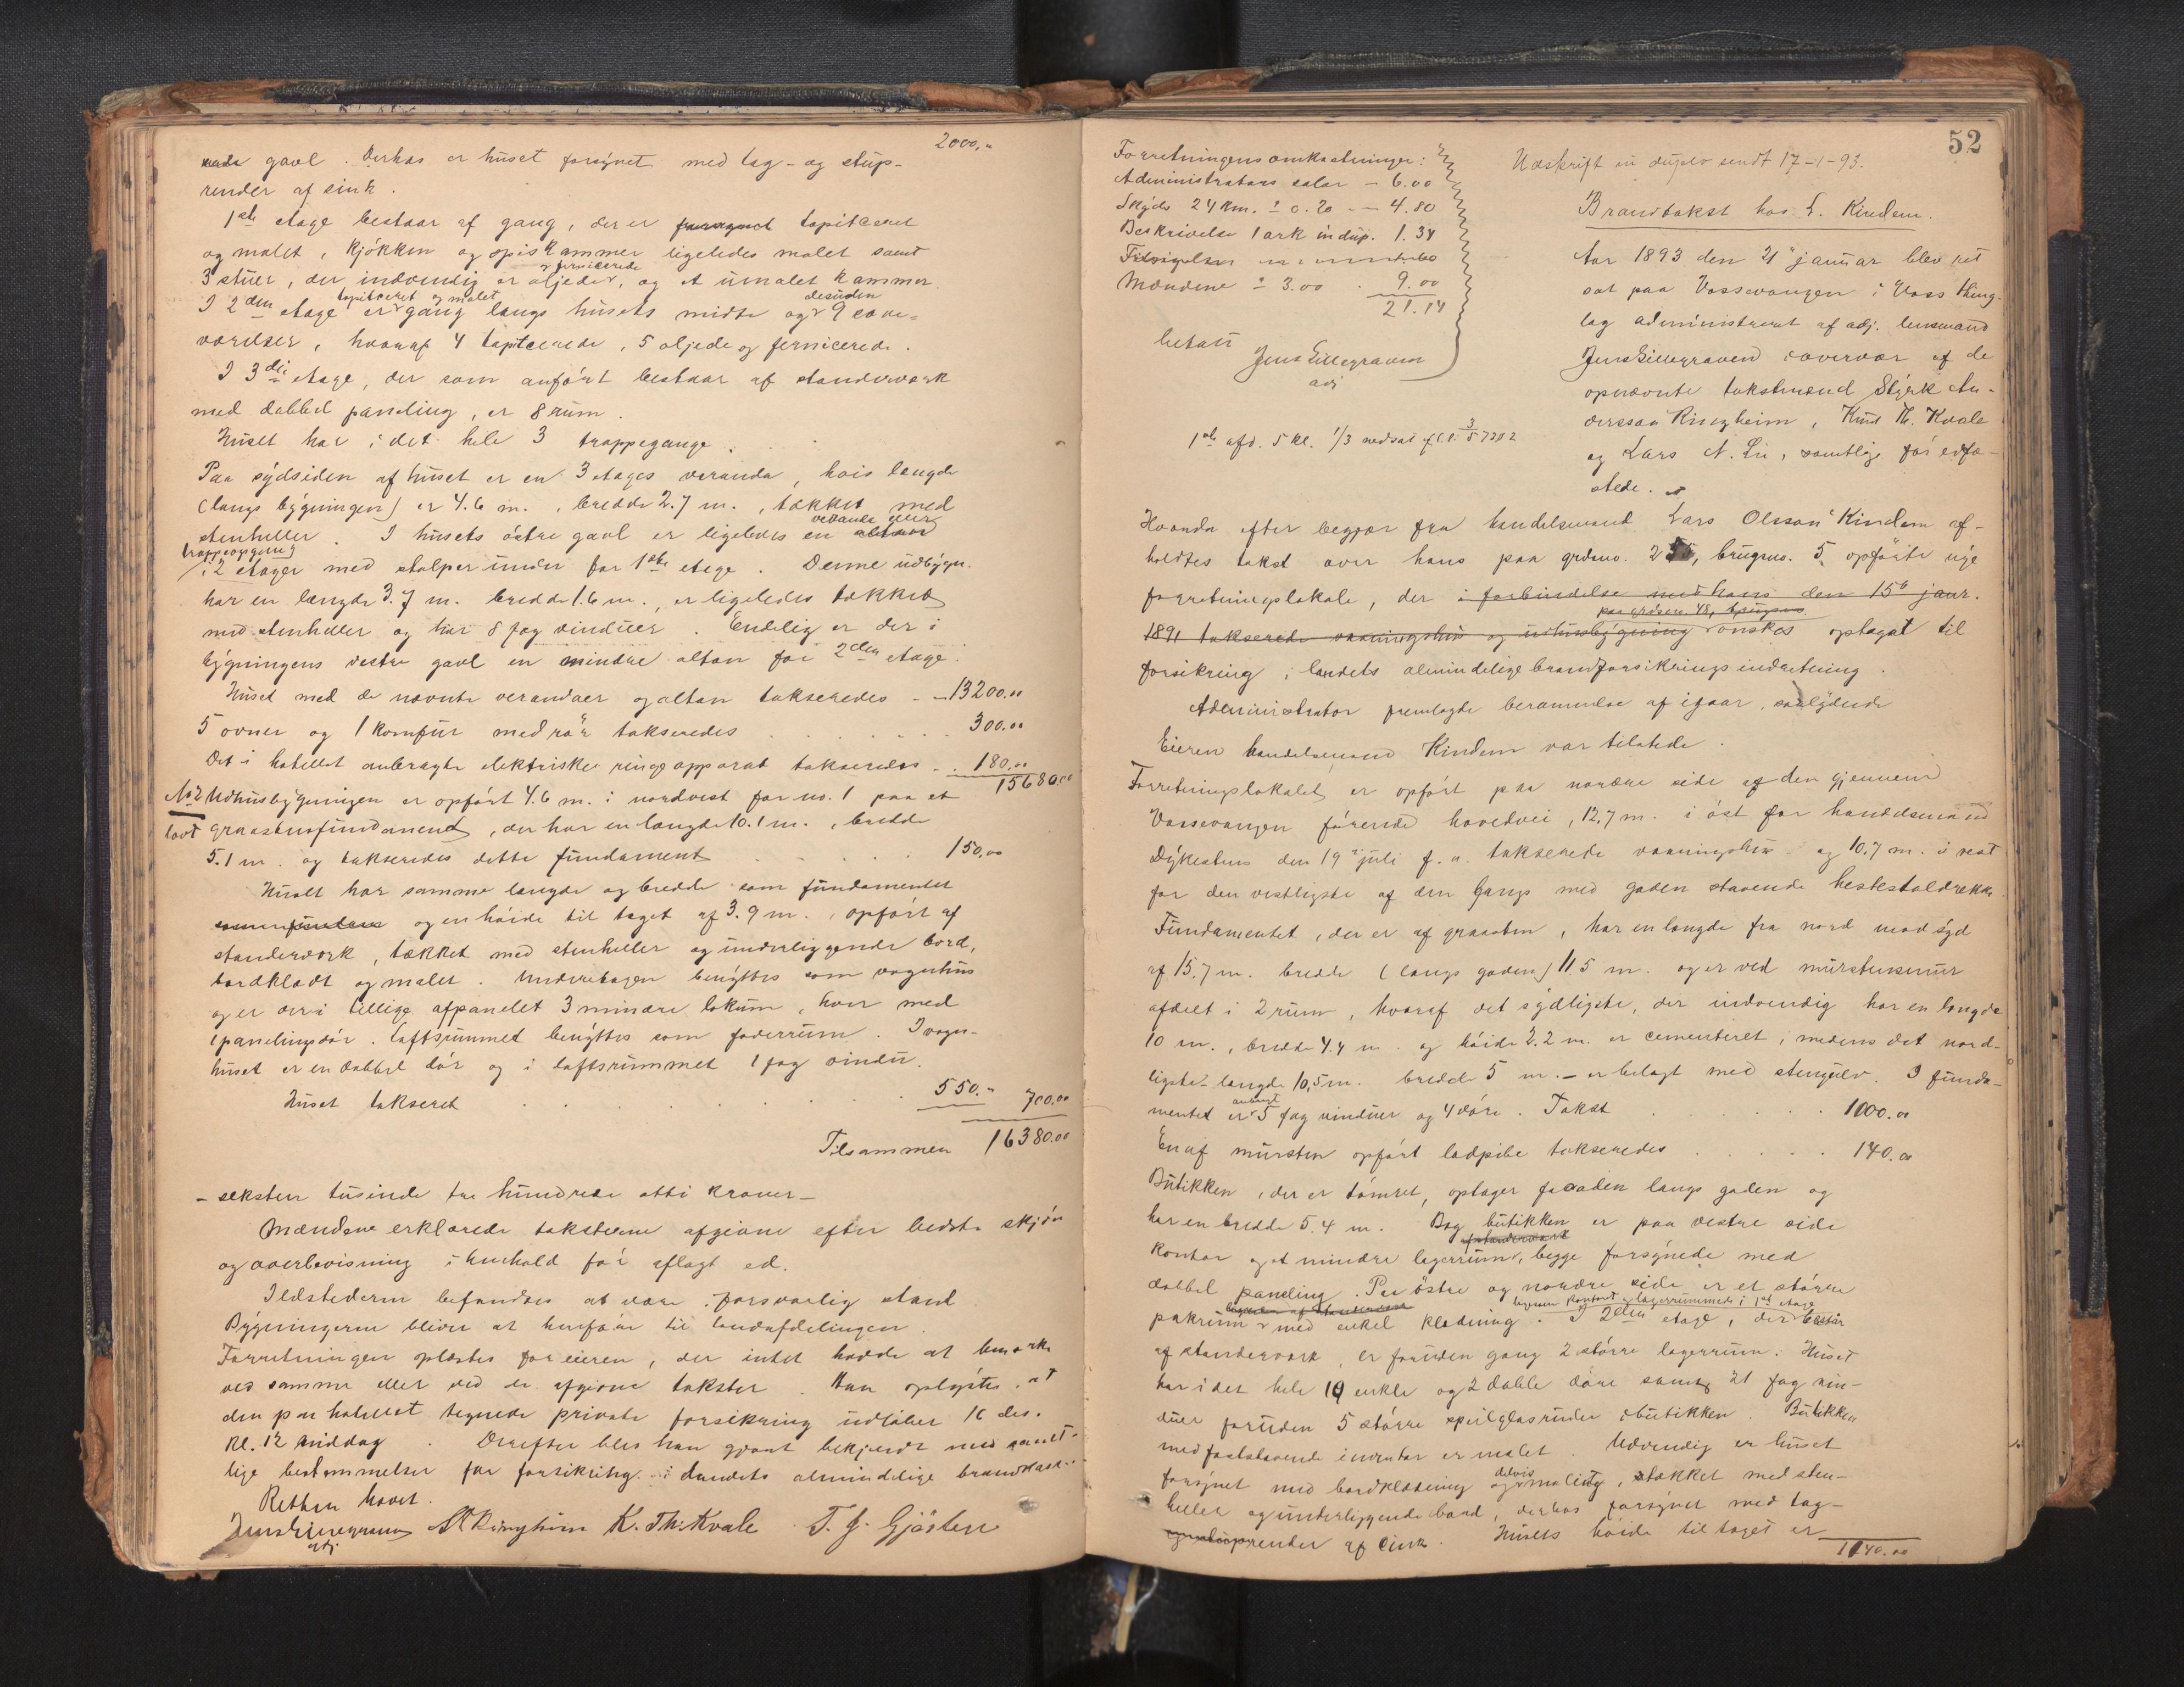 2000,"
gavl. Derhos er huset forsynet med tag- og stup-
render af sink.
1ste etage bestaar af gang, der er forsynet tapitceret
og malet, kjøkken og opiskammer ligeledes malet samt
3 stuer, der indvendig er oljede og fernicerede, og et umalet kammer.
I 2den etage er tapitceret og malet gang langs husets midte og desuden 9 sove-
værelser, hvoraf 4 tapitcerede, 5 oljede og fernicerede.
I 3die etage, der som anført bestaar af standerværk
med dobbel paneling, er 8 rum.
Huset har i det hele 3 trappegange.
Paa sydsiden af huset er en 3 etages veranda, hvis længde
(langs bygningen) er 4.6 m., bredde 2.7 m., tækket med
stenheller. I husets østre gavl er ligeledes en altan veranda eller
trappeopgang i 2 etager med stolper under for 1ste etage. Denne udbygn.
har en længde 3.7 m. bredde 1.6 m., er ligeledes tækket
med stenheller og har 8 fag vinduer. Endelig er der i
bygningens vestre gavl en mindre altan for 2den etage.
Huset med de nævnte verandaer og altan takseredes - - 13200.00
5 ovner og 1 komfur med rør takseredes . . . . . 300.00
Det i hotellet anbragte elektriske ringeapparat takseredes - . 180.00
15680.00
No 2 Udhusbygningen er opført 4.6 m. i nordvest for no. 1 paa et
lavt graastensfundament, der har en længde 10.1 m., bredde
5.1 m. og takseredes dette fundament . . . . 150.00
Huset har samme længde og bredde som fundamentet
og en høide til taget af 3.9 m., opført af
standerværk, tækket med stenheller og underliggende bord,
bordklædt og malet. Underetagen benyttes som vognhus
og er deri tillige afpanelet 3 mindre lokum, hver med
1 panelingsdør. Loftsrummet benyttes som foderrum. I vogn-
huset er en dobbel dør og i loftsrummet 1 fag vindu.
Huset takseret . . . . . . . 550." 700.00
Tilsammen 16380.00
- seksten tusinde tre hundrede otti kroner -
Mændene erklærede taksterne afgivne efter bedste skjøn
og overbevisning i henhold før aflagt ed.
Ildstederne befandtes at være i forsvarlig stand
Bygningerne bliver at henføre til landafdelingen.
Forretningen oplæstes for eieren, der intet havde at bemærke
ved samme eller ved de afgivne takster. Han oplyste, at
den paa hotellet tegnede private forsikring udløber 16 des.
kl. 12 middag. Derefter blev han gjort bekjendt med samt-
lige bestemmelser for forsikring i landets almindelige brandkasse.
Retten hævet.
Jens Gillegraven St Ringheim K. Th. Kvale T. J. Gjøsten
adj
52
Forretningens omkostninger:
Administrators salær - 6.00
Skyds 24 km. à 0.20 - - 4.80
Beskrivelse 1 ark in dup. 1.34
Mændene à 3.00 . 9.00
21.14
betalt
Jens Gillegraven
adj
1ste afd. 5 kl. 1/3 nedsat
Udskrift in duplo sendt 17-1-93.
Brandtakst hos L. Kindem.
Aar 1893 den 21 januar blev ret
sat paa Vossevangen i Voss thing-
lag administreret af adj. lensmand
Jens Gillegraven i overvær af de
opnævnte takstmænd Styrk An-
dersson Ringheim, Knud Th. Kvale
og Lars N. Lie, samtlige før edfæ-
stede.
Hvorda efter begjær fra handelsmand Lars Olsson Kindem af-
holdtes takst over hans paa grdsno. 255, brugsno. 5 opførte nye
forretningslokale, der i forbindelse med hans den 15de janr.
1891 takserede vaaningshus og udhusbygning paa grdsno 48, brugsno ønskes optaget til
forsikring i landets almindelige brandforsikringsindretning.
Administrator fremlagde berammelse af igaar, saalydende
Eieren handelsmand Kindem var tilstede.
Forretningslokalet er opført paa nordre side af den gjennem
Vossevangen førende hovedvei, 12.7 m. i øst for handelsmand
Dykestens den 19de juli f. a. takserede vaaningshus og 10.7 m. i vest
for den vestligste af den langs med gaden staaende hestestaldrække
Fundamentet, der er af graasten, har en længde fra nord mod syd
af 15.7 m. bredde (langs gaden) 11.5 m. og er ved murstensmur
afdelt i 2 rum, hvoraf det sydligste, der indvendig har en længde
10 m., bredde 4.4 m. og høide 2.2 m. er cementeret, medens det nord-
ligste - længde 10,5 m. bredde 5 m. - er belagt med stengulv. I funda-
mentet er anbragt 5 fag vinduer og 4 døre. Takst . . . . 1000.00
En af mursten opført ladpibe takseredes . . . . . 140.00
Butikken, der er tømret, optager facaden langs gaden og
har en bredde 5.4 m. Bag butikken er paa vestre side
kontor og et mindre lagerrum, af standerværk begge forsynede med
dobbel paneling. Paa østre og nordre side er et større
pakrum med enkel klædning. I 2den etage, der ligesom kontoret og lagerrummet i 1ste etage bestaar
af standerværk, er foruden gang 2 større lagerrum. Huset
har i det hele 19 enkle og 2 doble døre samt 21 fag vin-
duer foruden 5 større speilglasruder i butikken. Butikken
med fastståaende inventar er malet. Udvendig er huset
forsynet med bordklædning og delvis maling, tækket med sten-
heller og underliggende bord, derhos forsynet med tag-
render af sink. Husets høide til taget er
1140.00